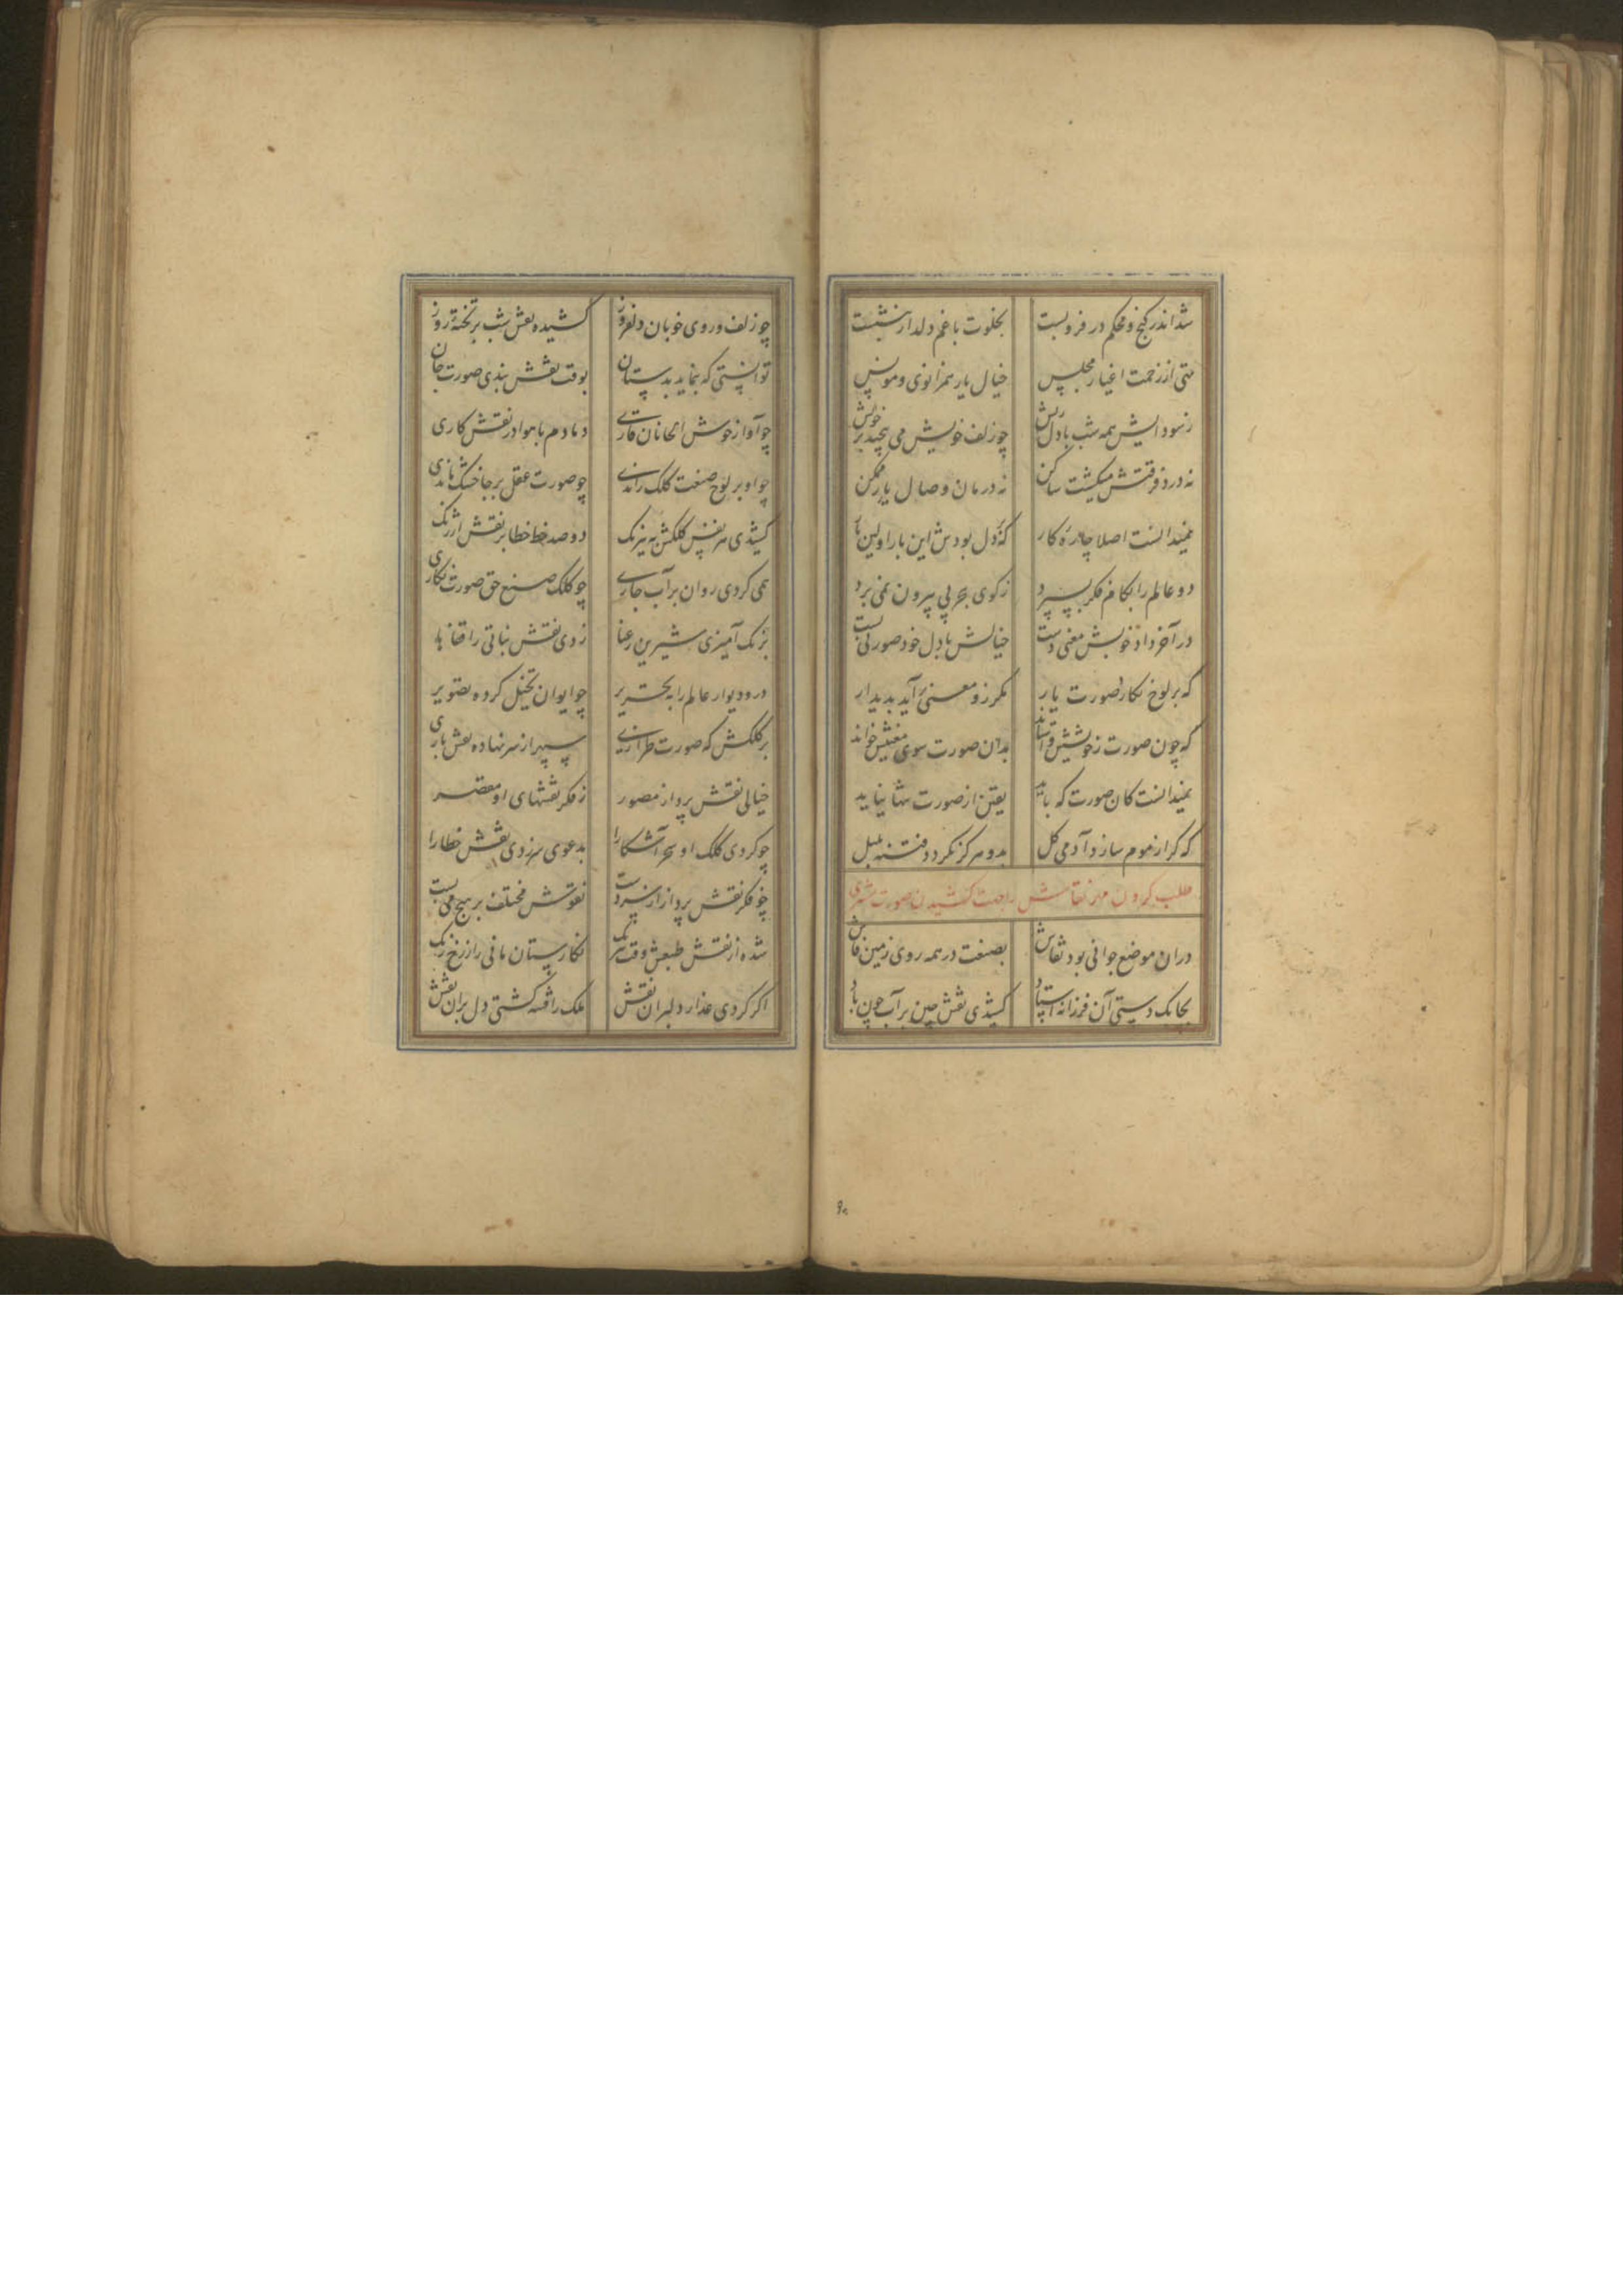 شد اندر کنج و محکم در فرو بست بخلوت با غم دلدار بنشست
تهی از زحمت اغیار مجلس خیال یار همزانوی و مونس
ز سودایش همه شب با دل ریش چو زلف خویش می پیچید بر خویش
نه درد فرقتش میکشت ساکن نه درمان وصال یار ممکن
نمیدانست اصلا چاره کار که دل بودش این بار اولین بار
دو عالم را بکام فکر بسپرد ز کوی بیرون نمی برد
در آخر داد خوبش معنی دست خیالش با دل خود صورتی بست
که بر لوح نکارد صورت یار مکر زو معنی آید پدیدار
که چون صورت ز خویشش وا ستاند بدان صورت سوی معنیش خواند
نمیدانست کان صورت که باید یقین از صورت نیاید
که کر از موم سازد آدمی کل بدو هرکز نکردد فتنه بلبل
طلب کردن مهر نقاش را جهت کشیدن صورت مشتری
دران موضع جوانی بود نقاش بصنعت در همه روی زمین فاش
بچابک دستی آن فرزانه استاد کشیدی نقش چین بر آب چون باد
چو زلف و روی خوبان دلفروز کشیده نقش شب بر تخته روز
توانستی که بنماید بدستان بوقت نقش بندی صورت جان
چو آواز خوش الحانان قاری دمادم با هوا در نقش کاری
چو او بر لوح صنعت کلک راندی چو صورت عقل بر جا خشک ماندی
کشیدی هر نفس کلکش به نیرنک دو صد خط خطا بر نقش ارژنک
همی کردی روان بر آب جاری چو کلک صنع حق صورت نکاری
برنک آمیزی شیرین رعنا زدی نقش نباتی را قفاها
در و دیوار عالم را به تحریر چو ایوان تخیل کرده تصویر
بر کلکش که صورت طرازی سپهر از سر نهاده نقش بازی
خیالی نقش پرداز مصور ز فکر نقشهای او مقصر
چو کردی کلک او سحر آشکارا بدعوی سر زدی نقش خطا را
چو فکر نقش پرداز از سر دست نقوش مختلف بر هیچ می بست
شده از نقش طبعش وقت نیرنک نکارستان مانی را ز رخ رنک
اکر کردی عذار دلبران نقش ملک را فتنه کشتی دل بران نقش